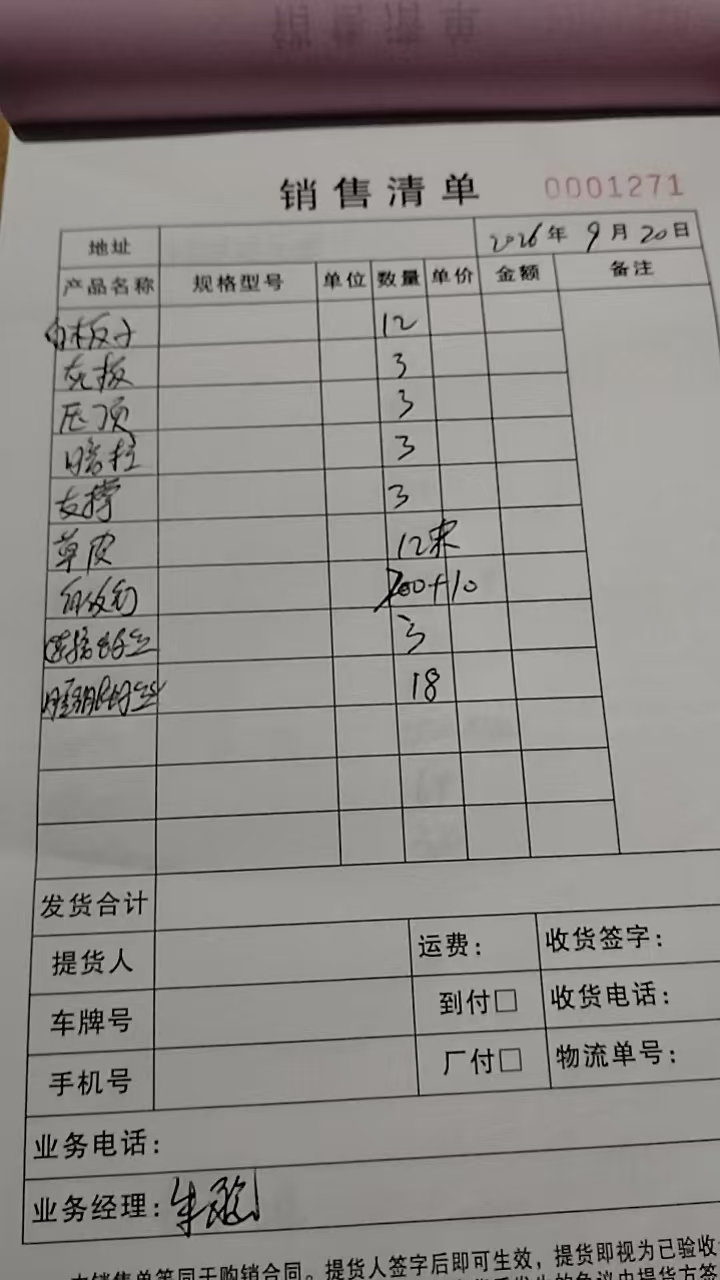 销售清单 0001271
地址 2026年9月20日
产品名称 规格型号 单位 数量 单价 金额 备注
白板子 12
灰板 3
压顶 3
暗柱 3
支撑 3
草皮 12米
200+10
3
18
发货合计
提货人 运费: 收货签字:
车牌号 到付□ 收货电话:
手机号 厂付□ 物流单号:
业务电话:
业务经理:
本销售单等同于购销合同。提货人签字后即可生效，提货即视为已验收